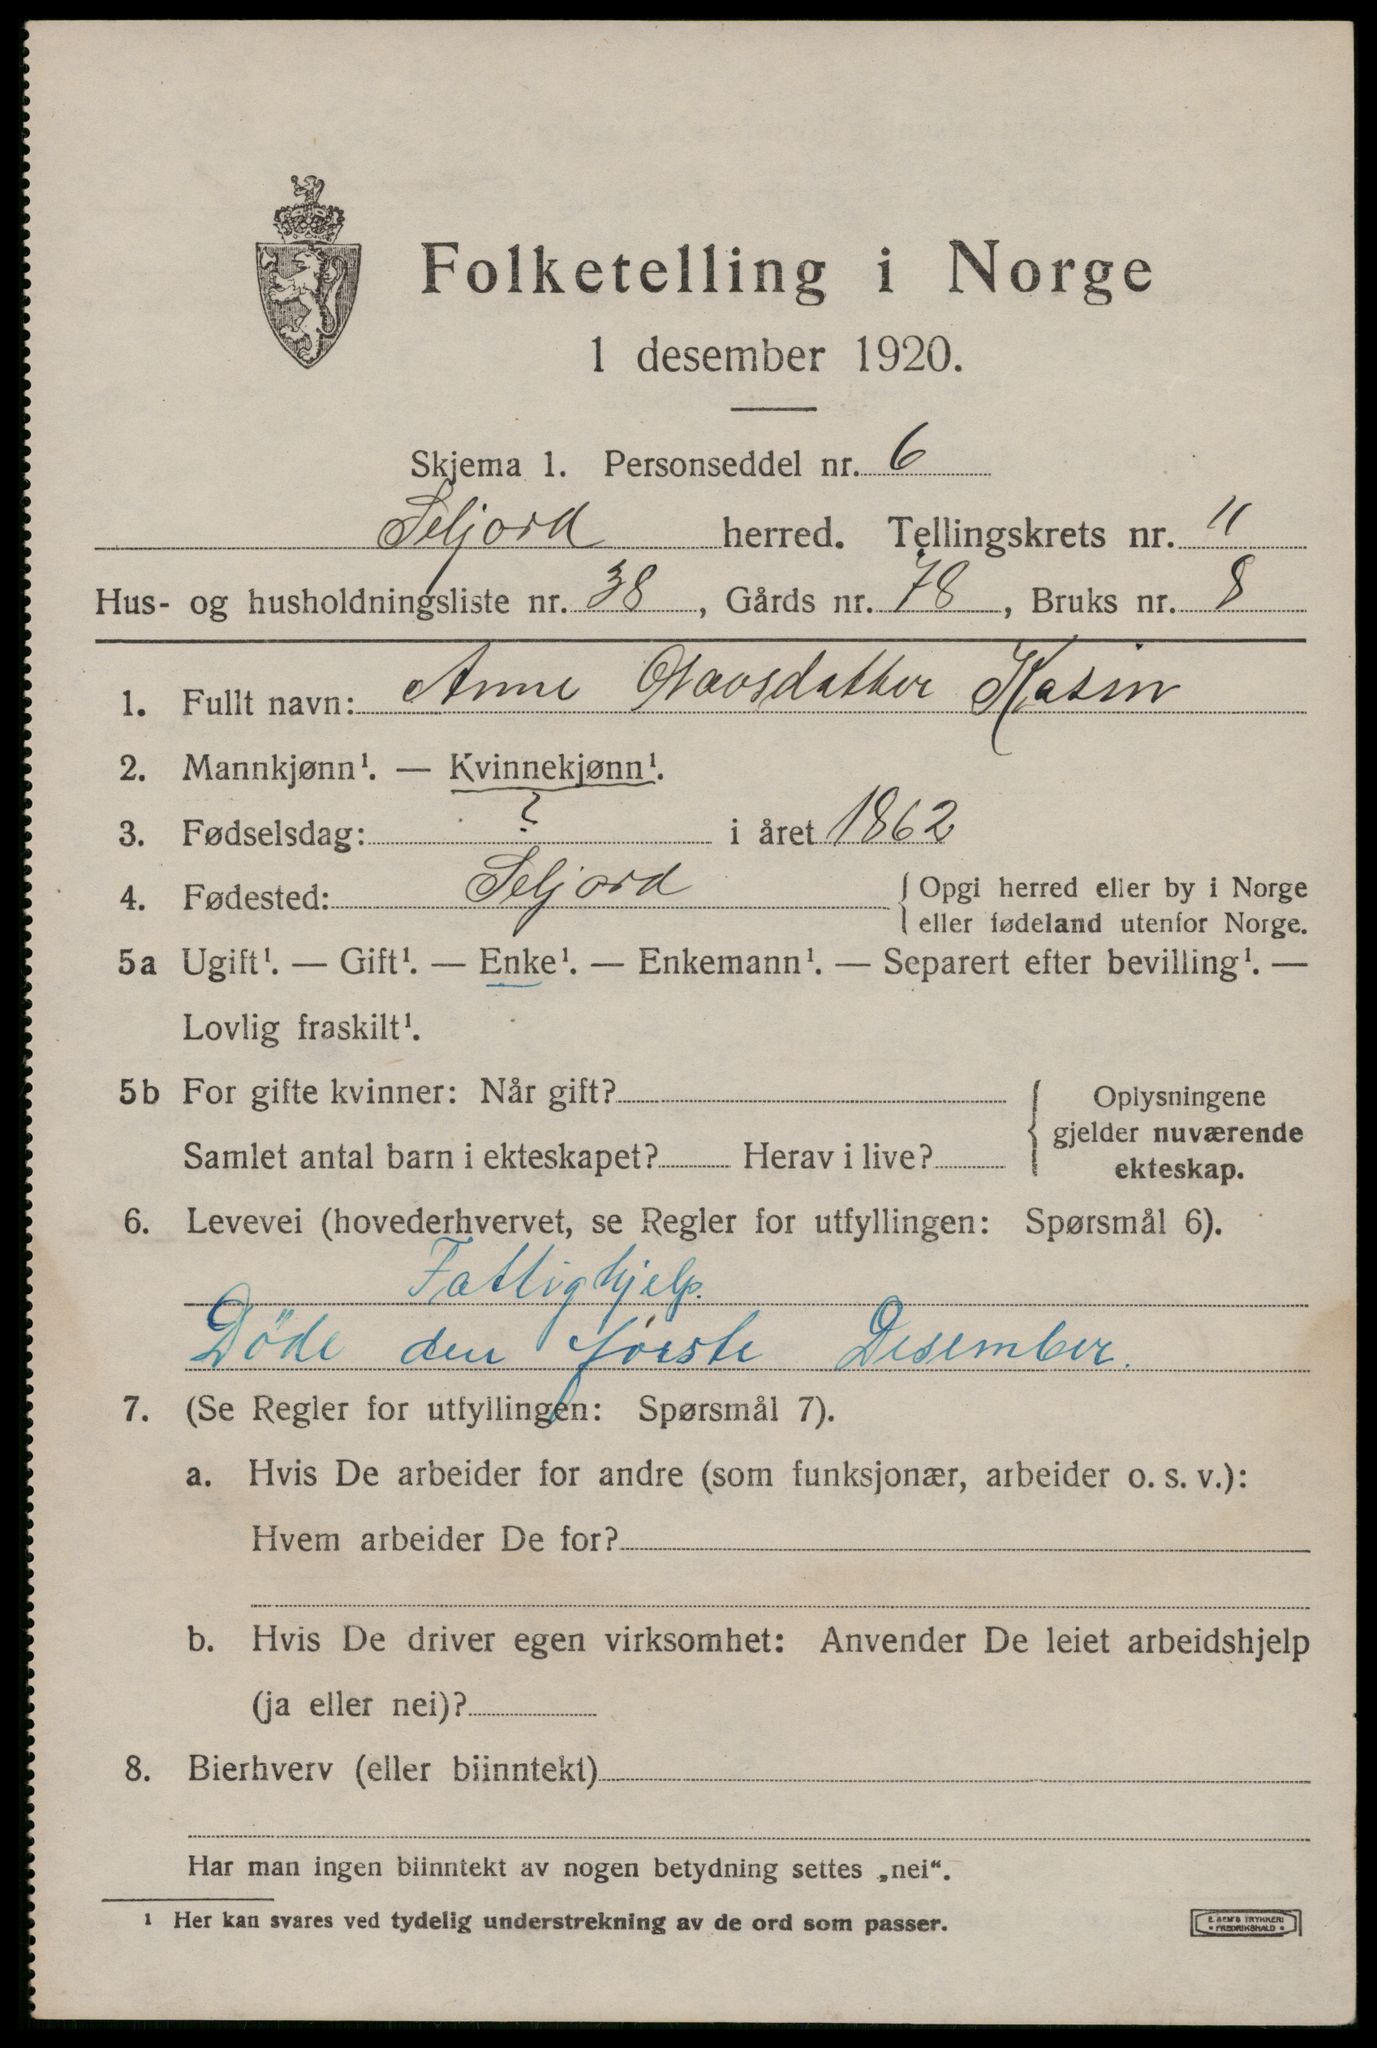 Folketelling i Norge
1 desember 1920.
Skjema 1. Personseddel nr. 6
Seljord herred. Tellingskrets nr. 11
Hus- og husholdningsliste nr. 38, Gårds nr. 78, Bruks nr. 8
1. Fullt navn: Anne Olavsdatter Kasin
2. Mannkjønn¹. — Kvinnekjønn¹.
3. Fødselsdag: ? i året 1862
4. Fødested: Seljord { Opgi herred eller by i Norge
eller fødeland utenfor Norge.
5a Ugift¹. — Gift¹. — Enke¹. — Enkemann¹. — Separert efter bevilling¹. —
Lovlig fraskilt¹.
5b For gifte kvinner: Når gift?
Samlet antal barn i ekteskapet? Herav i live?
{ Oplysningene
gjelder nuværende
ekteskap.
6. Levevei (hovederhvervet, se Regler for utfyllingen: Spørsmål 6).
Fattighjelp.
Döde den förste Desember.
7. (Se Regler for utfyllingen: Spørsmål 7).
a. Hvis De arbeider for andre (som funksjonær, arbeider o. s. v.):
Hvem arbeider De for?
b. Hvis De driver egen virksomhet: Anvender De leiet arbeidshjelp
(ja eller nei)?
8. Bierhverv (eller biinntekt)
Har man ingen biinntekt av nogen betydning settes „nei“.
¹ Her kan svares ved tydelig understrekning av de ord som passer.
E. SEM'S TRYKKERI
• FREDRIKSHALD •